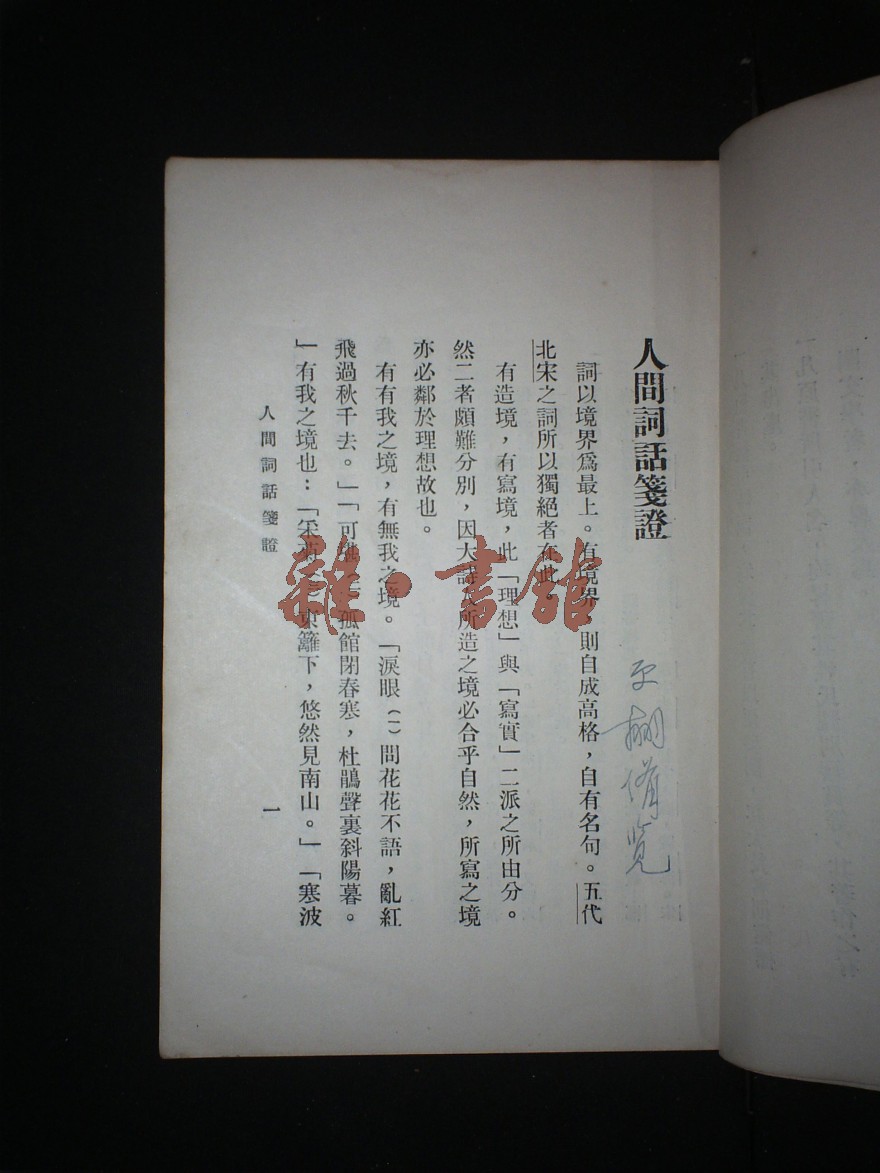 人間詞話箋證
詞以境界爲最上。有境界,則自成高格,自有名句。五代
北宋之詞所以獨絕者在此
有造境,有寫境,此「理想」與「寫實」二派之所由分。
然二者頗難分別,因大詩人所造之境必合乎自然,所寫之境
亦必鄰於理想故也。
有有我之境,有無我之境。「淚眼(一)問花花不語,亂紅
飛過秋千去。」「可孤館閉春寒,杜鵑聲裏斜陽暮。
」有我之境也:「采菊東籬下,悠然見南山。」「寒波
人間詞話箋證
一
雜·書館
覽